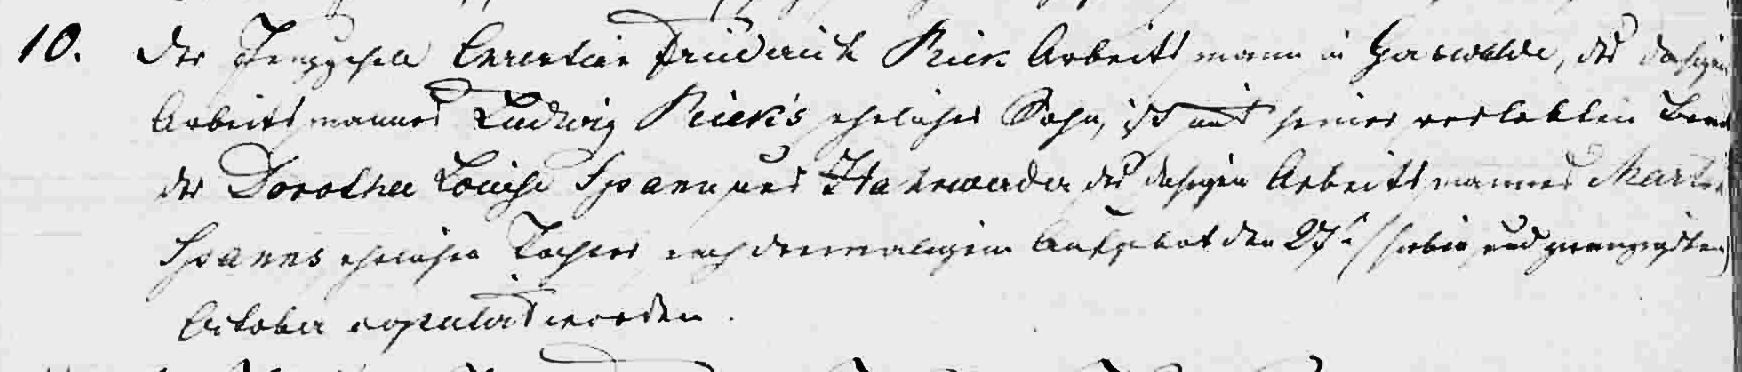 10. Der Junggesell Christian Friedrich Rick Arbeitsmann in Garwalde, des dasigen
Arbeitsmannes Ludwig Rick's ehelicher Sohn, ist mit seiner verlobten Braut
der Dorothee Louise Spann aus des dasigen Arbeitsmannes Martin
Spanns ehelichen Tochter nach dreimaligem Aufgebot den 27t. (sieben und zwanzigsten)
October copulirt worden.